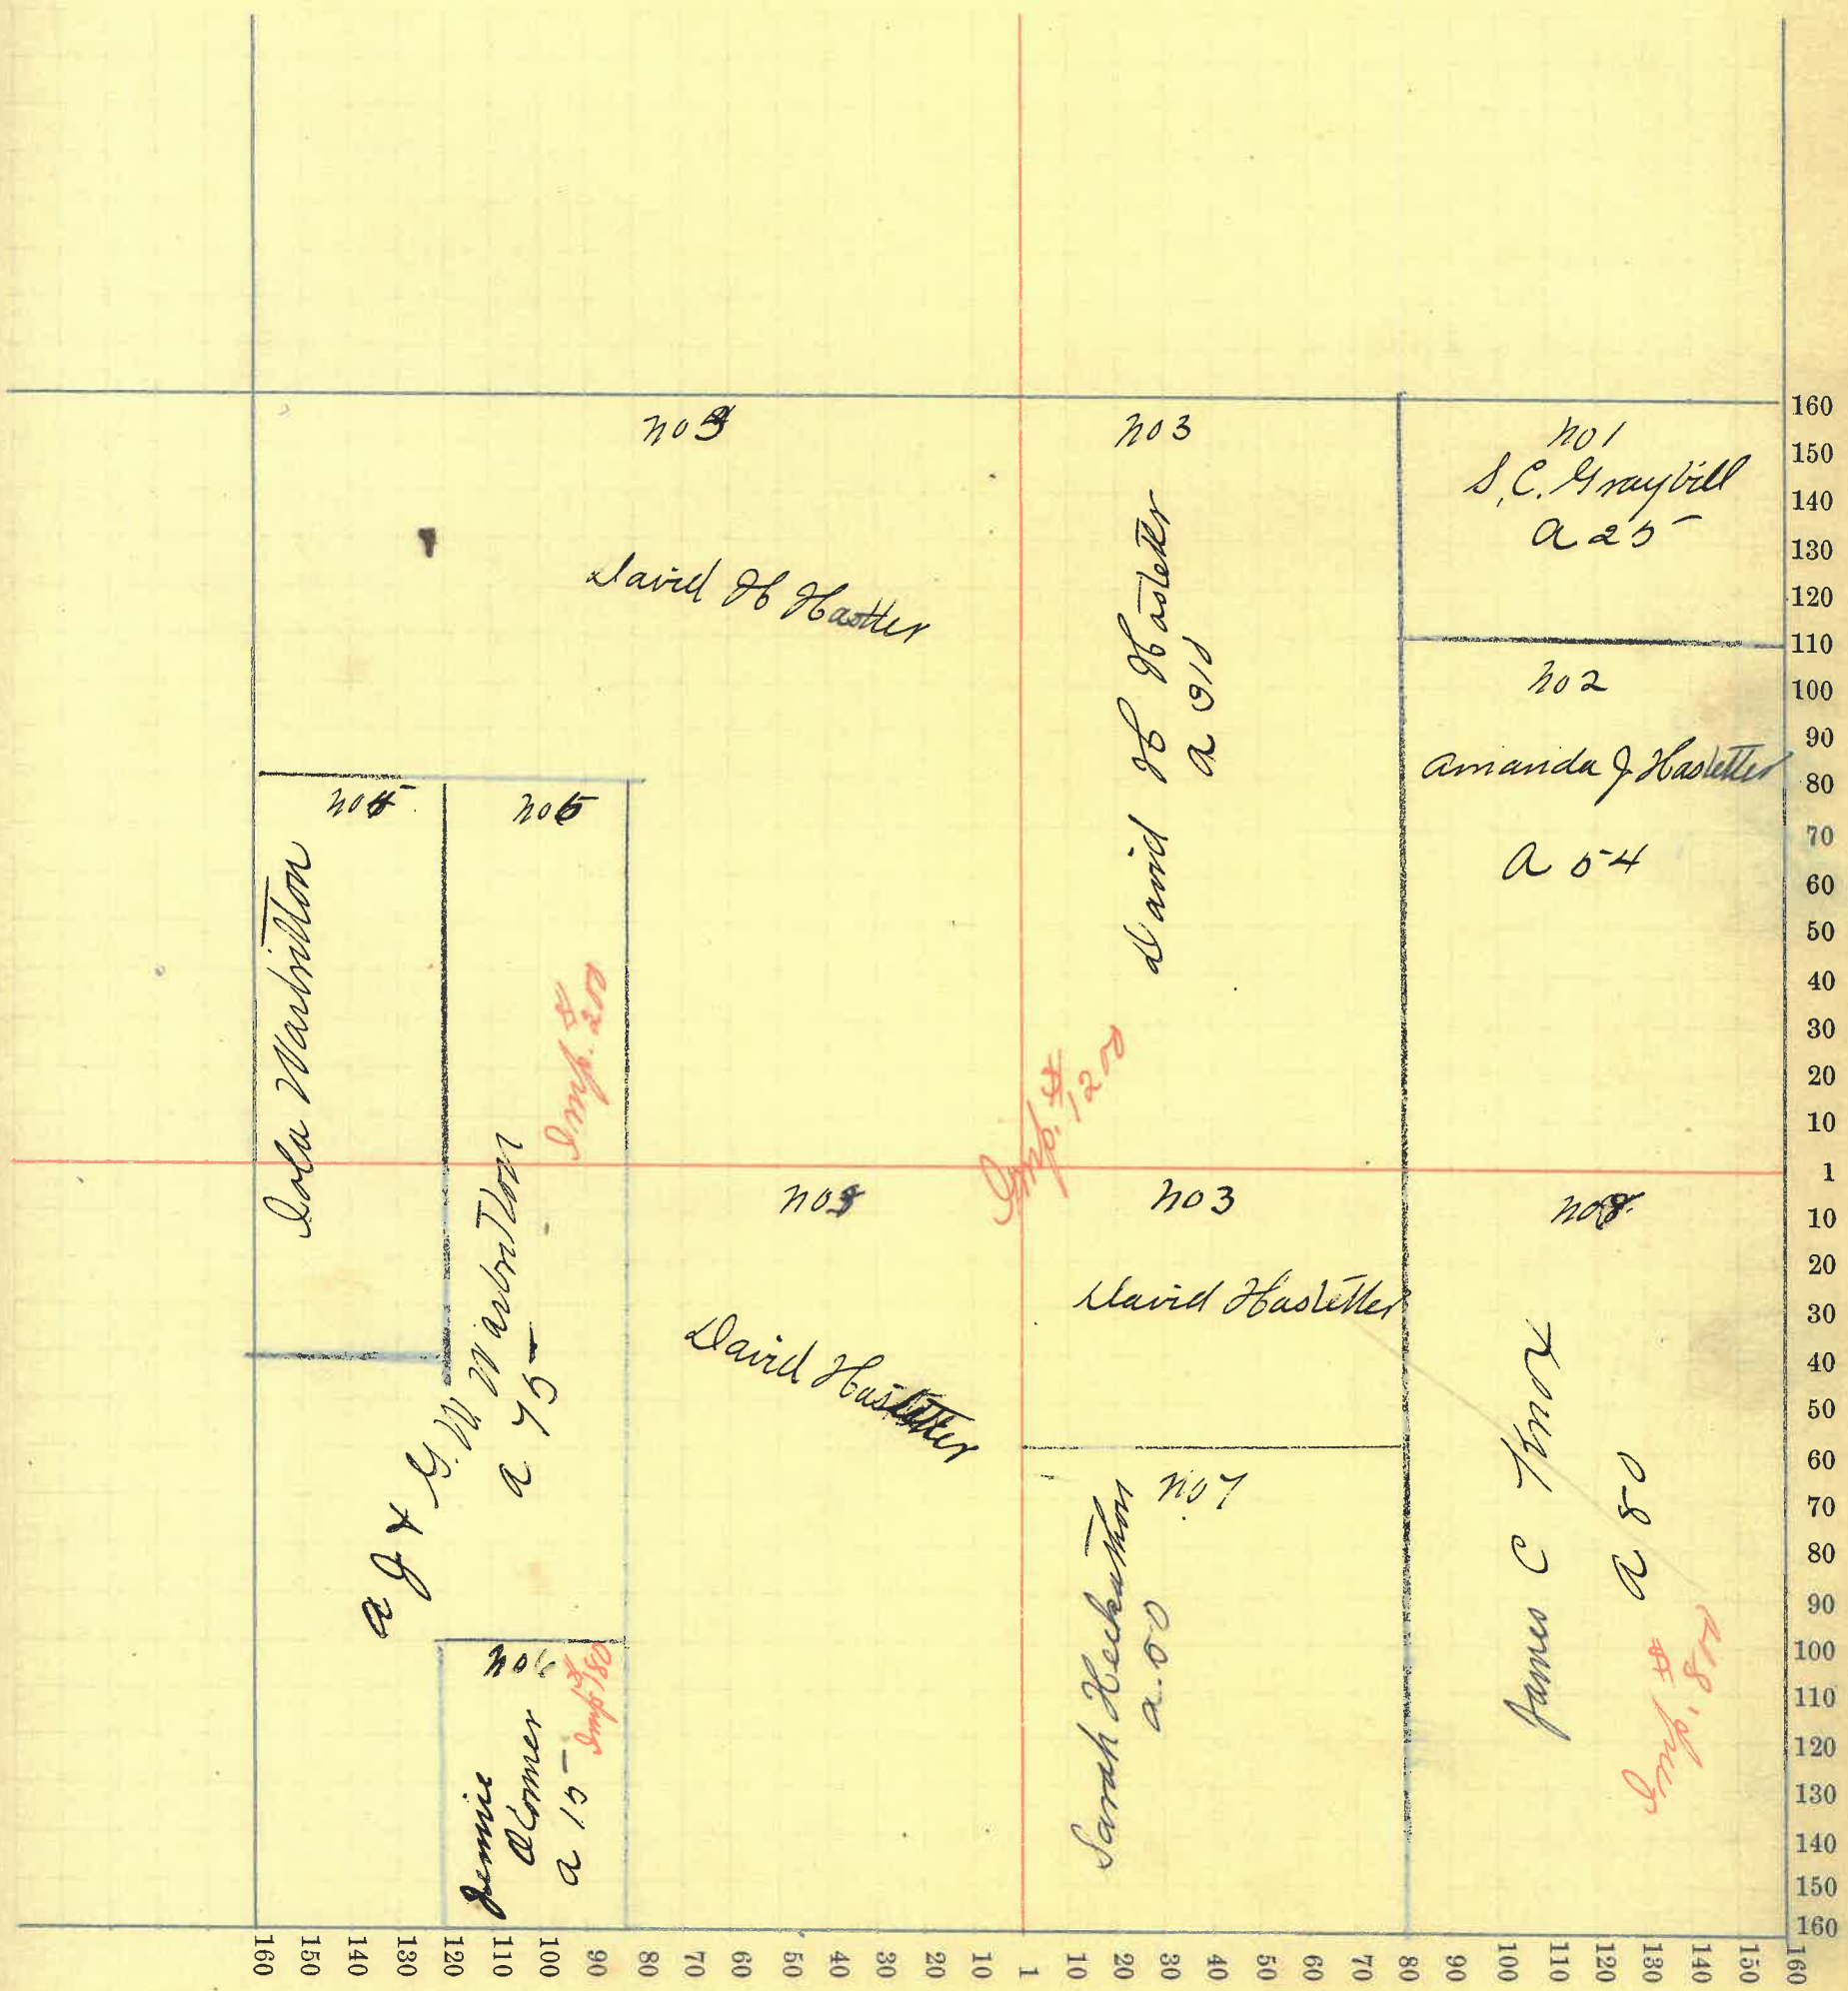 no 3
David H Hastter
no 3
David H Hastetter
a 91
no 1
S. C. Graybill
a 25
no 2
Amanda J Hastetter
a 54
Warbritton
no 5
A J & G. W Warbritton
a 75
Imp. $ 200
Imp. $ 1200
David Hastetter
no 3
David Hastetter
no 6
Jennie
a 15
Imp $ 180
no 7
Sarah
a. 50
no 8
James C Knox
a 80
Imp. $
160
150
140
130
120
110
100
90
80
70
60
50
40
30
20
10
1
10
20
30
40
50
60
70
80
90
100
110
120
130
140
150
160
160 150 140 130 120 110 100 90 80 70 60 50 40 30 20 10 1 10 20 30 40 50 60 70 80 90 100 110 120 130 140 150 160